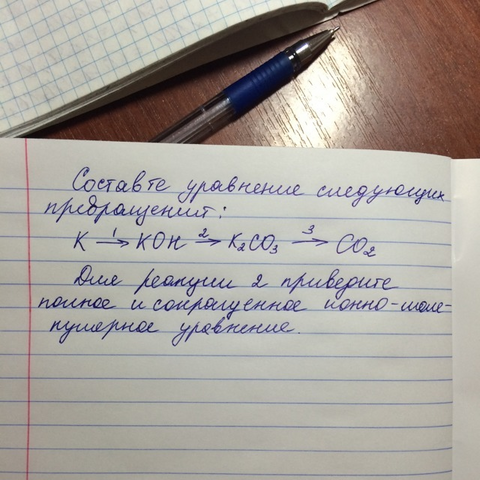 Составте уравнение следующих
превращений:
K —1→ KOH —2→ K₂CO₃ —3→ CO₂
Для реакции 2 приведите
полное и сокращенное ионно-моле-
кулярное уравнение.